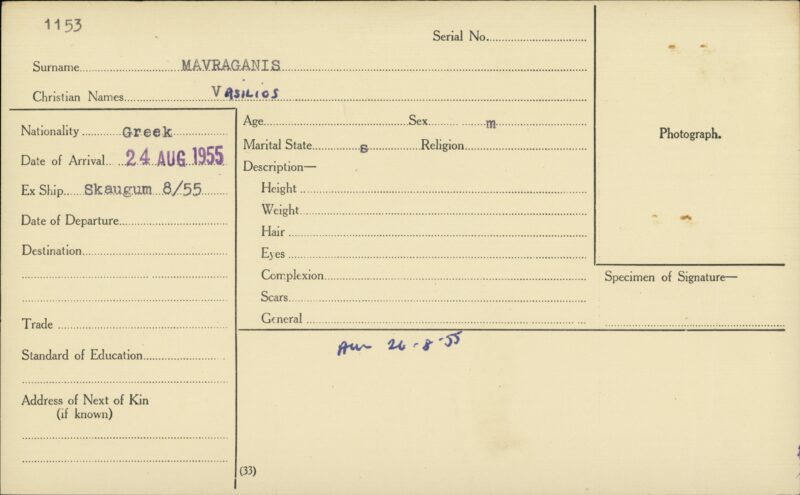 1153
Serial No.
Surname MAVRAGANIS
Christian Names VASILIOS
Nationality Greek
Date of Arrival 24 AUG 1955
Ex Ship Skaugum 8/55
Date of Departure
Destination
Trade
Standard of Education
Address of Next of Kin
(if known)
Age Sex m
Marital State s Religion
Description—
Height
Weight
Hair
Eyes
Complexion
Scars
General
26-8-55
(33)
Photograph.
Specimen of Signature—